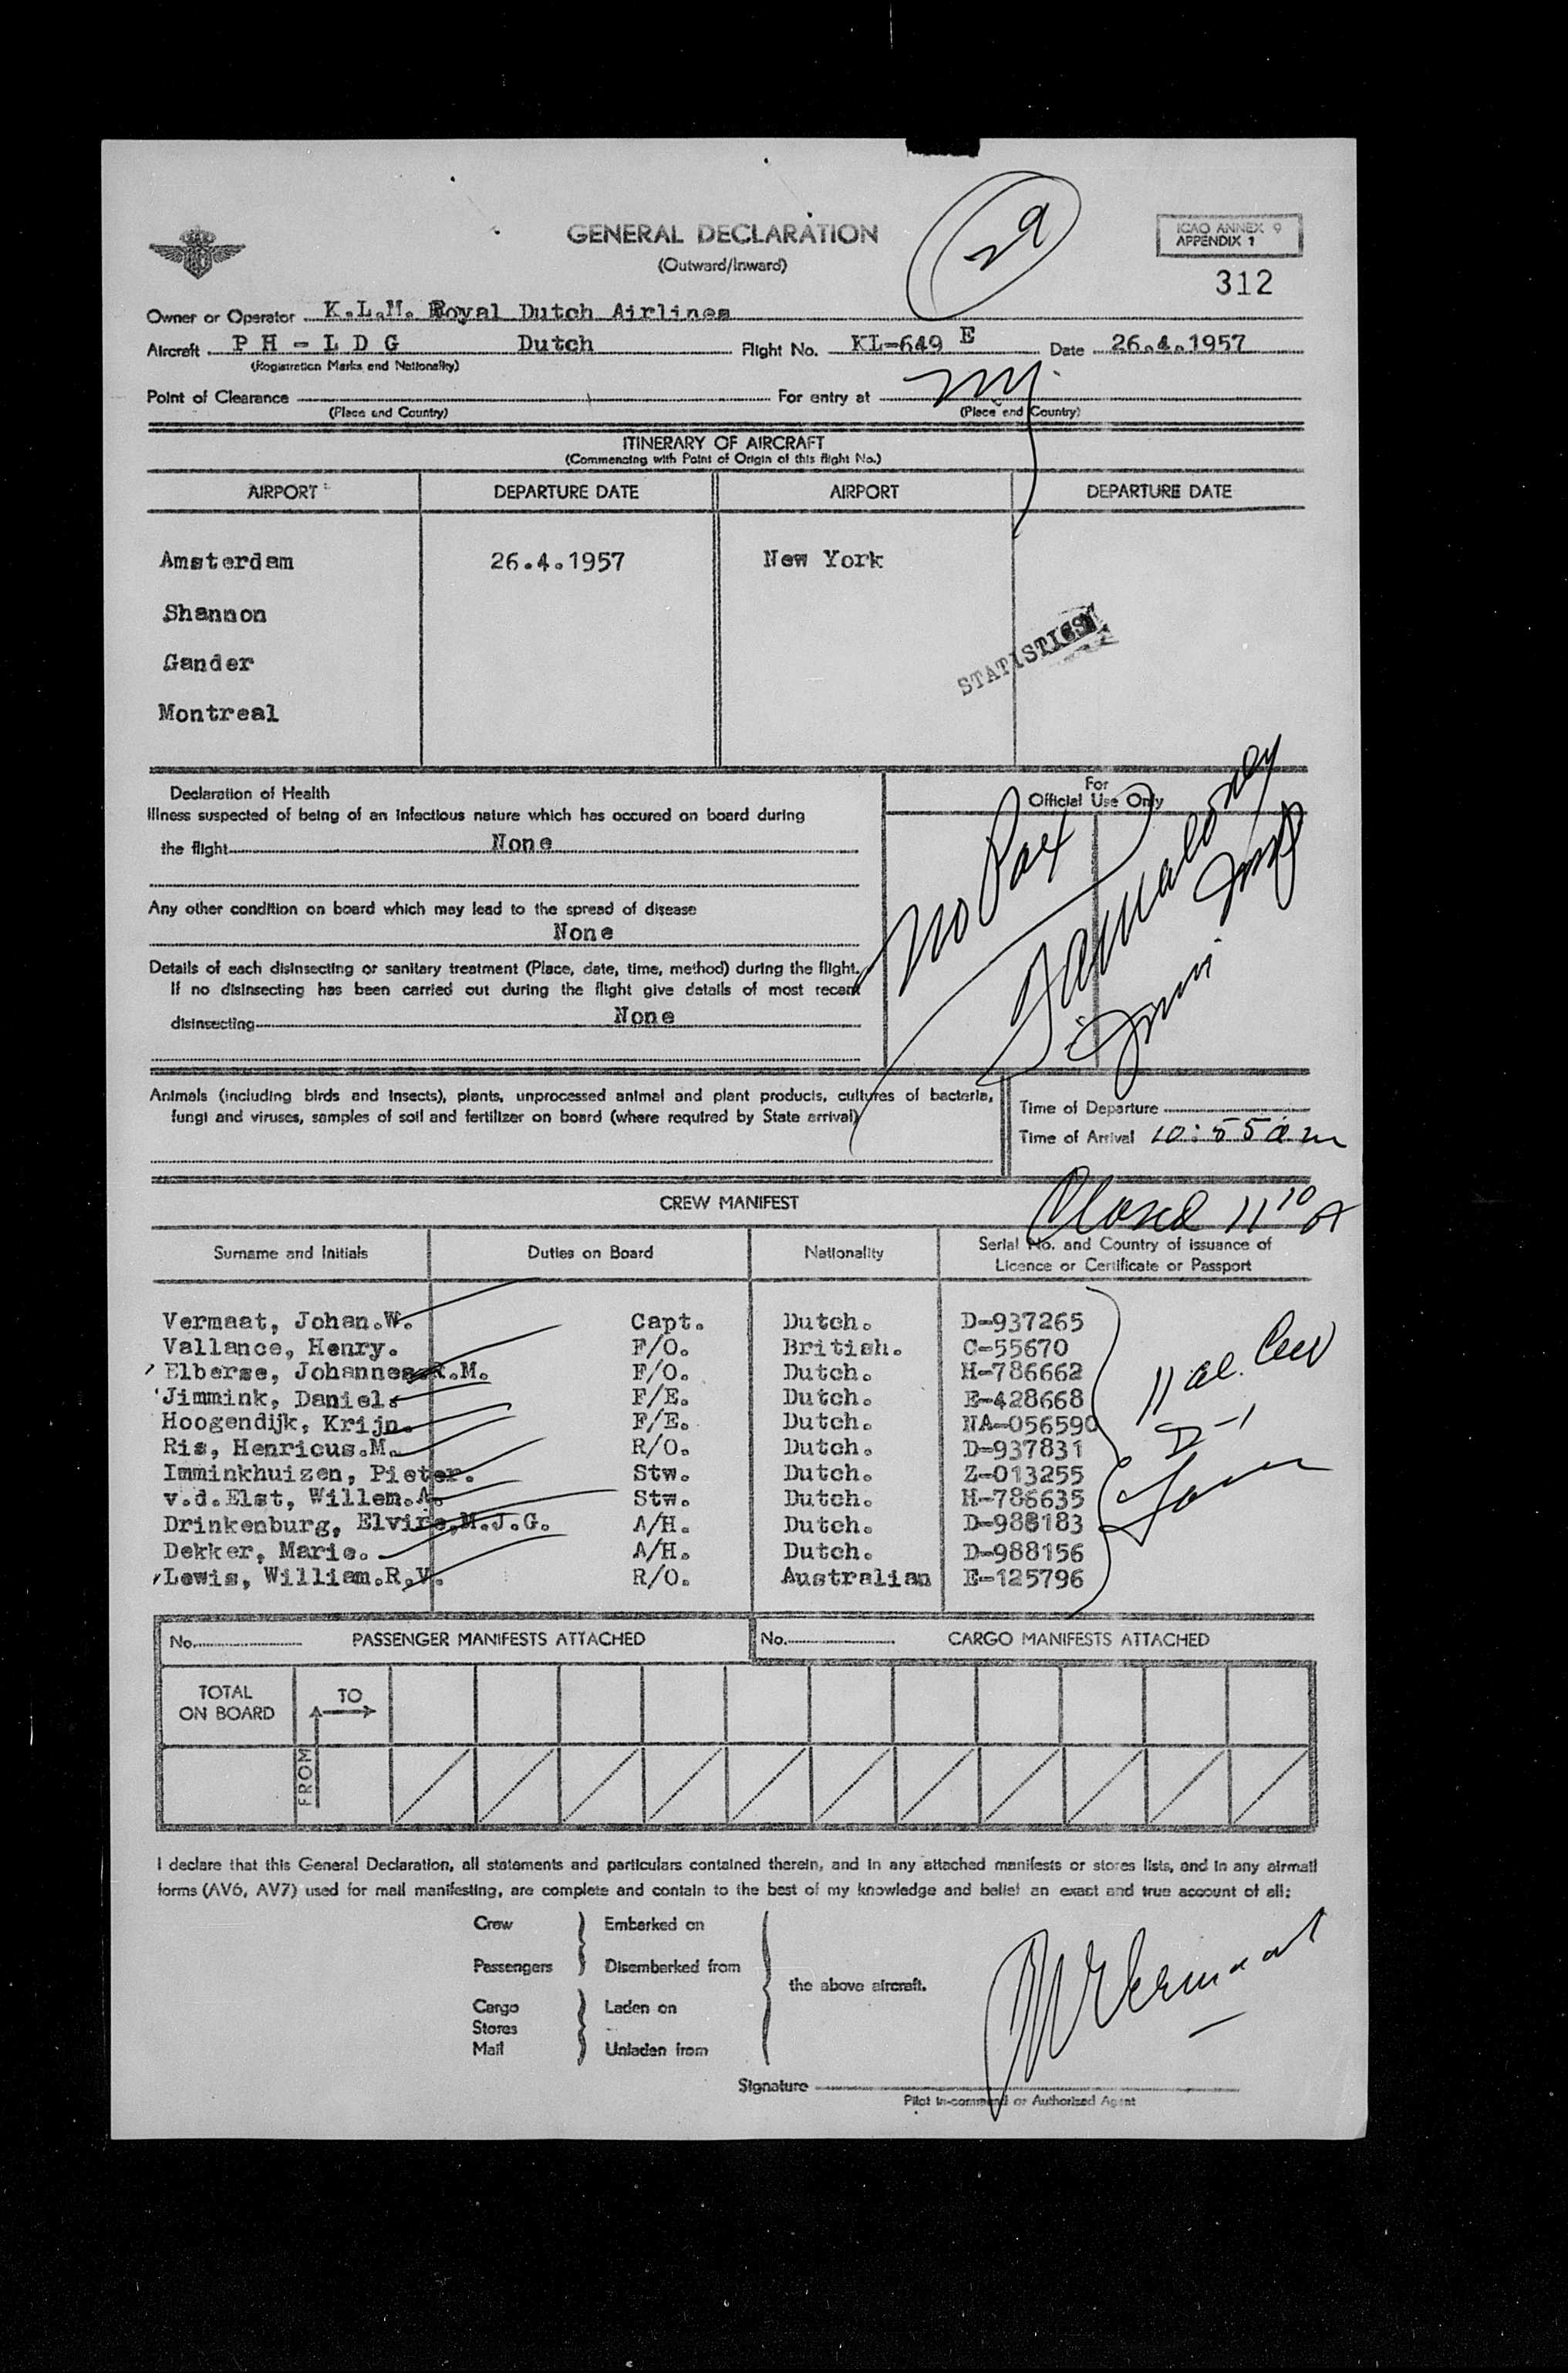 GENERAL DECLARATION
(Outward/Inward)
29
ICAO ANNEX 9
APPENDIX 1
312
Owner or Operator K.L.M. Royal Dutch Airlines
Aircraft P H - L D G Dutch Flight No. KL-649 E Date 26.4.1957
(Registration Marks and Nationality)
Point of Clearance For entry at NY.
(Place and Country) (Place and Country)
ITINERARY OF AIRCRAFT
(Commencing with Point of Origin of this flight No.)
AIRPORT DEPARTURE DATE AIRPORT DEPARTURE DATE
Amsterdam 26.4.1957 New York
Shannon
Gander
Montreal
STATISTICS
Declaration of Health
Illness suspected of being of an infectious nature which has occured on board during
the flight None
Any other condition on board which may lead to the spread of disease
None
Details of each disinsecting or sanitary treatment (Place, date, time, method) during the flight.
If no disinsecting has been carried out during the flight give details of most recent
disinsecting None
For
Official Use Only
No Pax
Animals (including birds and insects), plants, unprocessed animal and plant products, cultures of bacteria,
fungi and viruses, samples of soil and fertilizer on board (where required by State arrival)
Time of Departure
Time of Arrival 10:55 am
Closed 11 10 A
CREW MANIFEST
Surname and Initials Duties on Board Nationality Serial No. and Country of issuance of
Licence or Certificate or Passport
Vermaat, Johan.W. Capt. Dutch. D-937265
Vallance, Henry. F/O. British. C-55670
Elberse, Johannes.A.M. F/O. Dutch. H-786662
Jimmink, Daniel. F/E. Dutch. E-428668
Hoogendijk, Krijn. F/E. Dutch. NA-056590
Ris, Henricus.M. R/O. Dutch. D-937831
Imminkhuizen, Pieter. Stw. Dutch. Z-013255
v.d.Elst, Willem.A. Stw. Dutch. H-786635
Drinkenburg, Elvire,M.J.G. A/H. Dutch. D-988183
Dekker, Marie. A/H. Dutch. D-988156
Lewis, William.R.V. R/O. Australian E-125796
11 al. Crew
D-1
No. PASSENGER MANIFESTS ATTACHED No. CARGO MANIFESTS ATTACHED
TOTAL
ON BOARD
TO
FROM
I declare that this General Declaration, all statements and particulars contained therein, and in any attached manifests or stores lists, and in any airmail
forms (AV6, AV7) used for mail manifesting, are complete and contain to the best of my knowledge and belief an exact and true account of all:
Crew Embarked on
Passengers Disembarked from
the above aircraft.
Cargo Laden on
Stores
Mail Unladen from
JWVermaat
Signature
Pilot in-command or Authorised Agent